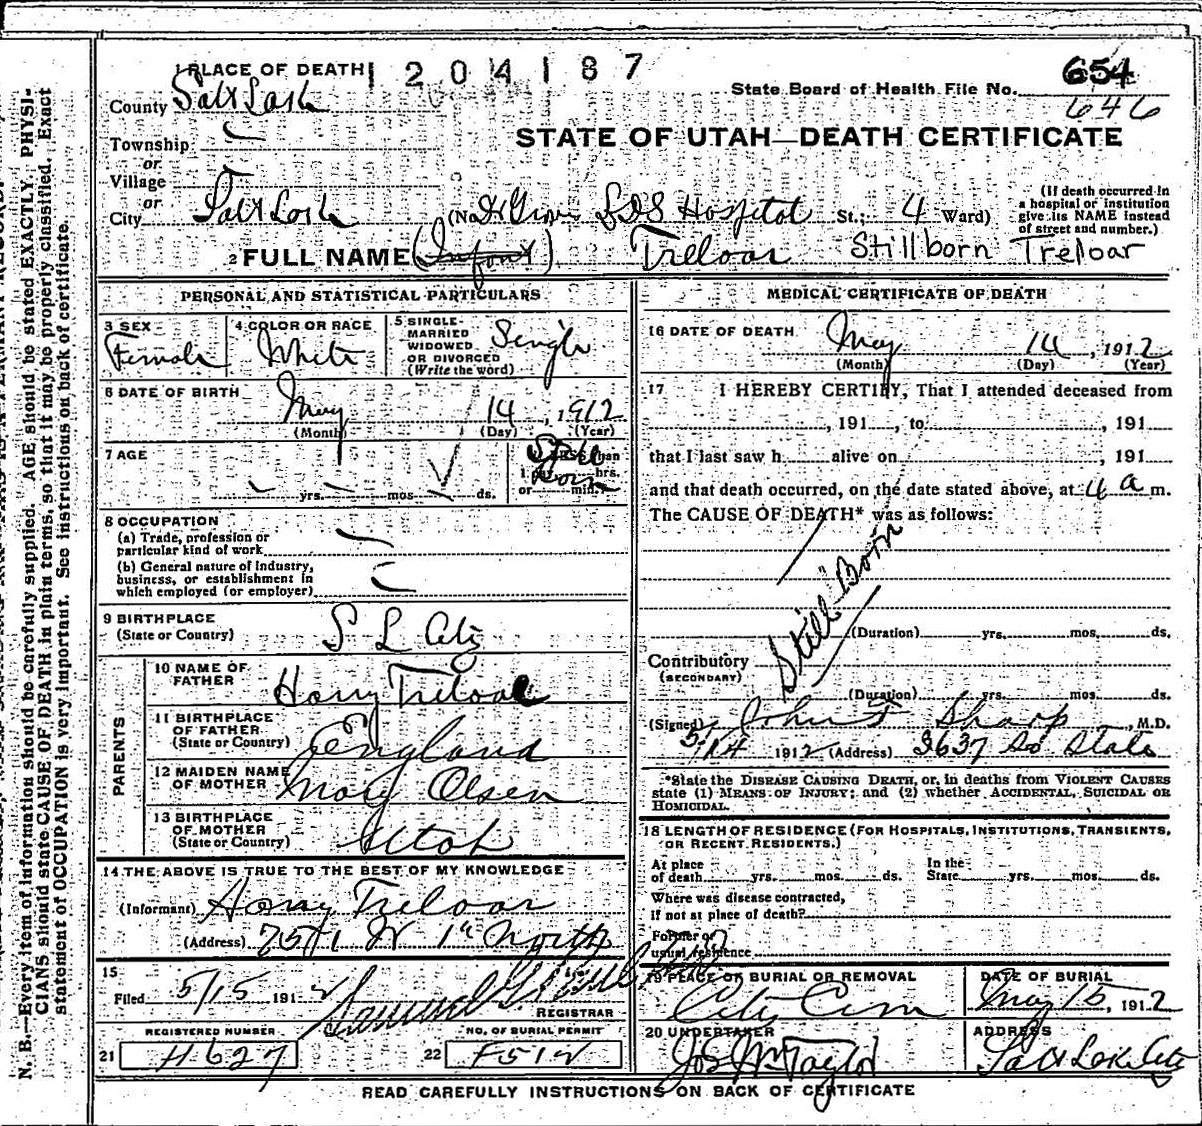 N. B.—Every item of information should be carefully supplied. AGE should be stated EXACTLY. PHYSI-
CIANS should state CAUSE OF DEATH in plain terms, so that it may be properly classified. Exact
statement of OCCUPATION is very important. See instructions on back of certificate.
1 PLACE OF DEATH 1204187
County Salt Lake
Township
or
Village
or
City Salt Lake
654
State Board of Health File No.
646
STATE OF UTAH—DEATH CERTIFICATE
(No. LDS Hospital St.; 4 Ward)
(If death occurred in
a hospital or institution
give its NAME instead
of street and number.)
2 FULL NAME (Infant) Treloar Stillborn Treloar
PERSONAL AND STATISTICAL PARTICULARS
3 SEX
Female
4 COLOR OR RACE
White
5 SINGLE-
MARRIED
WIDOWED
OR DIVORCED
(Write the word)
Single
6 DATE OF BIRTH
May 14, 1912
(Month) (Day) (Year)
7 AGE
yrs. mos. ds.
If LESS than
1 day hrs.
or min.?
Still
Born
8 OCCUPATION
(a) Trade, profession or
particular kind of work
(b) General nature of industry,
business, or establishment in
which employed (or employer)
9 BIRTHPLACE
(State or Country)
S L City
PARENTS
10 NAME OF
FATHER
Harry Treloar
11 BIRTHPLACE
OF FATHER
(State or Country)
England
12 MAIDEN NAME
OF MOTHER
Mary Olsen
13 BIRTHPLACE
OF MOTHER
(State or Country)
Utah
14 THE ABOVE IS TRUE TO THE BEST OF MY KNOWLEDGE
(Informant) Harry Treloar
(Address) W 1st North
15
Filed 5/15 1912 Samuel G
REGISTRAR
REGISTERED NUMBER
21 H627
NO. OF BURIAL PERMIT
22 F512
MEDICAL CERTIFICATE OF DEATH
16 DATE OF DEATH
May 14, 1912
(Month) (Day) (Year)
17 I HEREBY CERTIFY, That I attended deceased from
, 191 , to , 191
that I last saw h alive on , 191
and that death occurred, on the date stated above, at 4 a m.
The CAUSE OF DEATH* was as follows:
Still Born
(Duration) yrs. mos. ds.
Contributory
(SECONDARY)
(Duration) yrs. mos. ds.
(Signed) John F Sharp, M.D.
5/14 1912 (Address) 3637 So State
*State the DISEASE CAUSING DEATH, or, in deaths from VIOLENT CAUSES
state (1) MEANS OF INJURY; and (2) whether ACCIDENTAL, SUICIDAL OR
HOMICIDAL.
18 LENGTH OF RESIDENCE (FOR HOSPITALS, INSTITUTIONS, TRANSIENTS,
OR RECENT RESIDENTS.)
At place
of death yrs. mos. ds.
In the
State yrs. mos. ds.
Where was disease contracted,
if not at place of death?
Former or
usual residence
19 PLACE OF BURIAL OR REMOVAL
City Cem
DATE OF BURIAL
May 15, 1912
20 UNDERTAKER
Jos Wm Taylor
ADDRESS
Salt Lake City
READ CAREFULLY INSTRUCTIONS ON BACK OF CERTIFICATE